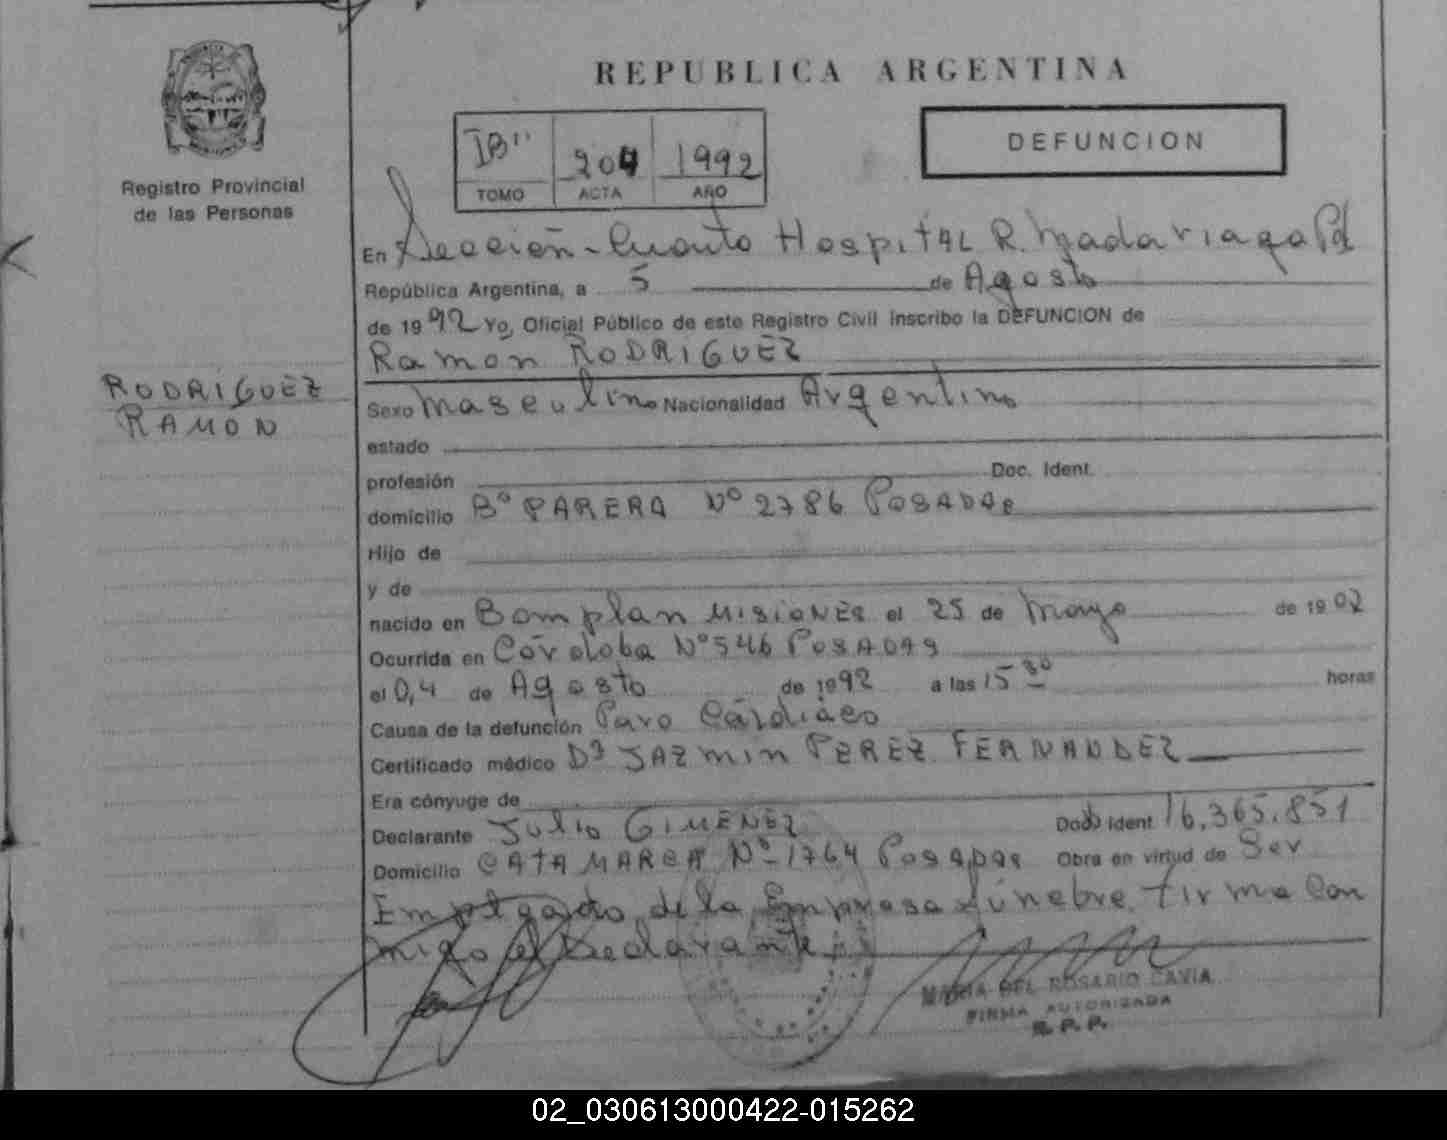 REPUBLICA ARGENTINA
Registro Provincial
de las Personas
1992
TOMO ACTA AÑO
DEFUNCION
En Sección Cuarto Hospital R. Madariaga Pd
República Argentina, a 5 de Agosto
de 1992 Yo, Oficial Público de este Registro Civil inscribo la DEFUNCION de
Ramon RODRIGUEZ
RODRIGUEZ
RAMON
Sexo Masculino Nacionalidad Argentino
estado
profesión Doc. Ident.
domicilio Bº PARERA Nº 2786 POSADAS
Hijo de
y de
nacido en Bomplan MISIONES el 25 de Mayo de 1902
Ocurrida en Córdoba Nº 546 POSADAS
el 0,4 de Agosto de 1992 a las 15 30 horas
Causa de la defunción Paro Cárdiaco
Certificado médico Dª JAZMIN PEREZ FERNANDEZ
Era cónyuge de
Declarante Julio GIMENEZ Doc. Ident. 16.365.851
Domicilio CATAMARCA Nº 1764 Posadas Obra en virtud de Ser
Empleado de la Empresa fúnebre firma Con
migo el Declarante
MARIA DEL ROSARIO CAVIA
FIRMA AUTORIZADA
R. P. P.
02_030613000422-015262